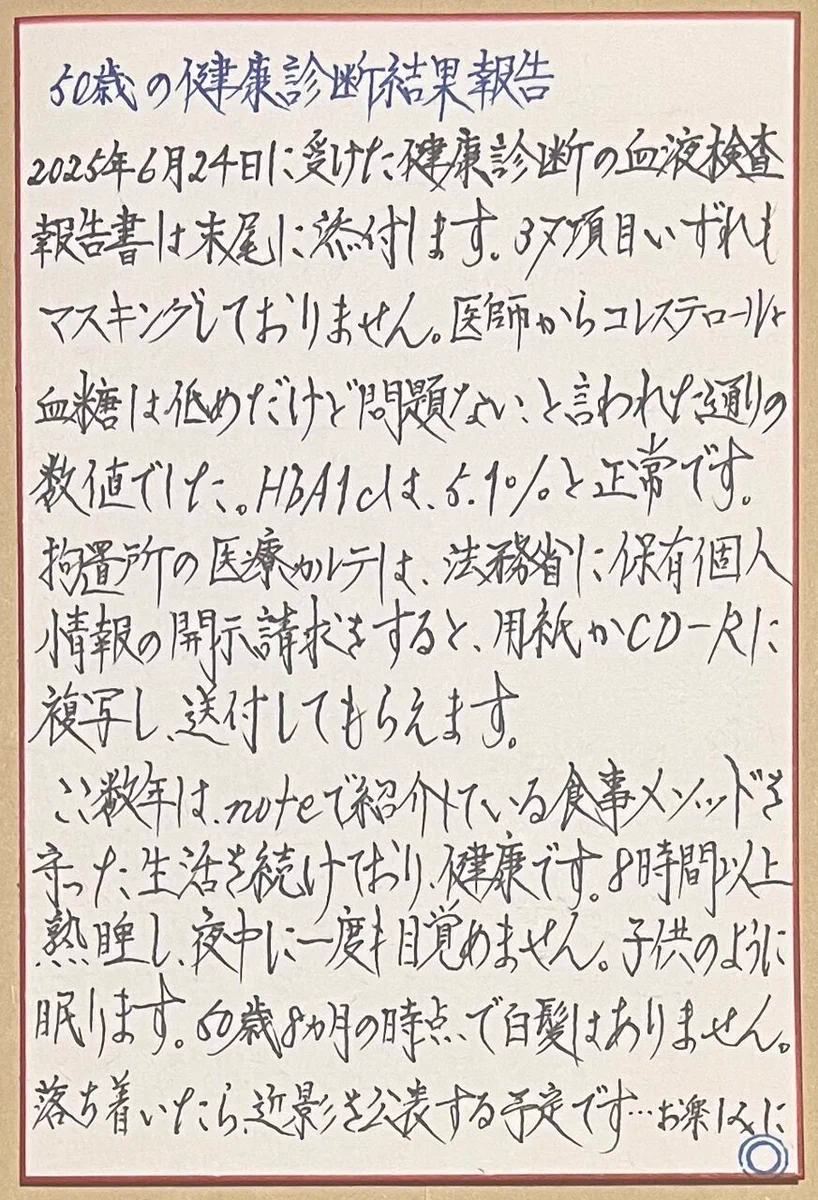 50歳の健康診断結果報告
2025年6月24日に受けた健康診断の血液検査
報告書は末尾に添付します。37項目いずれも
マスキングしておりません。医師からコレステロールと
血糖は低めだけど問題ない、と言われた通りの
数値でした。HbA1cは、5.1%と正常です。
拘置所の医療カルテは、法務省に保有個人
情報の開示請求をすると、用紙かCD-Rに
複写し、送付してもらえます。
ここ数年は、noteで紹介している食事メソッドを
守った生活を続けており、健康です。8時間以上
熟睡し、夜中に一度も目覚めません。子供のように
眠ります。50歳8カ月の時点で白髪はありません。
落ち着いたら、近影を公表する予定です…お楽しみに